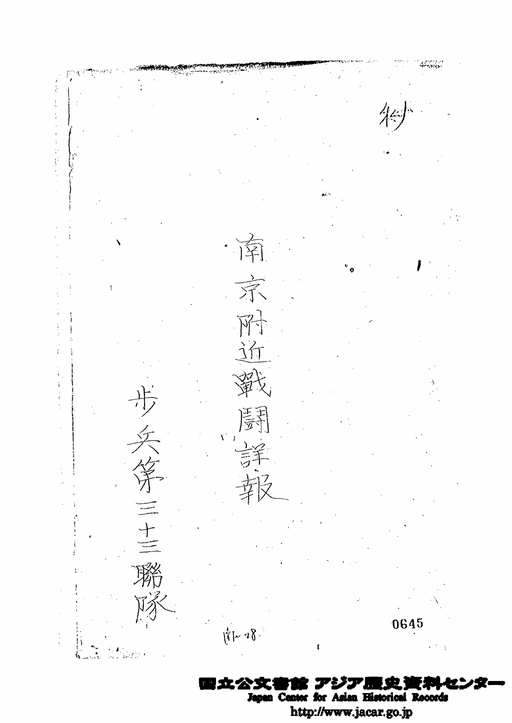 南京附近戰鬪詳報
歩兵第三十三聯隊
0645
国立公文書館 アジア歴史資料センター
Japan Center for Asian Historical Records
http://www.jacar.go.jp